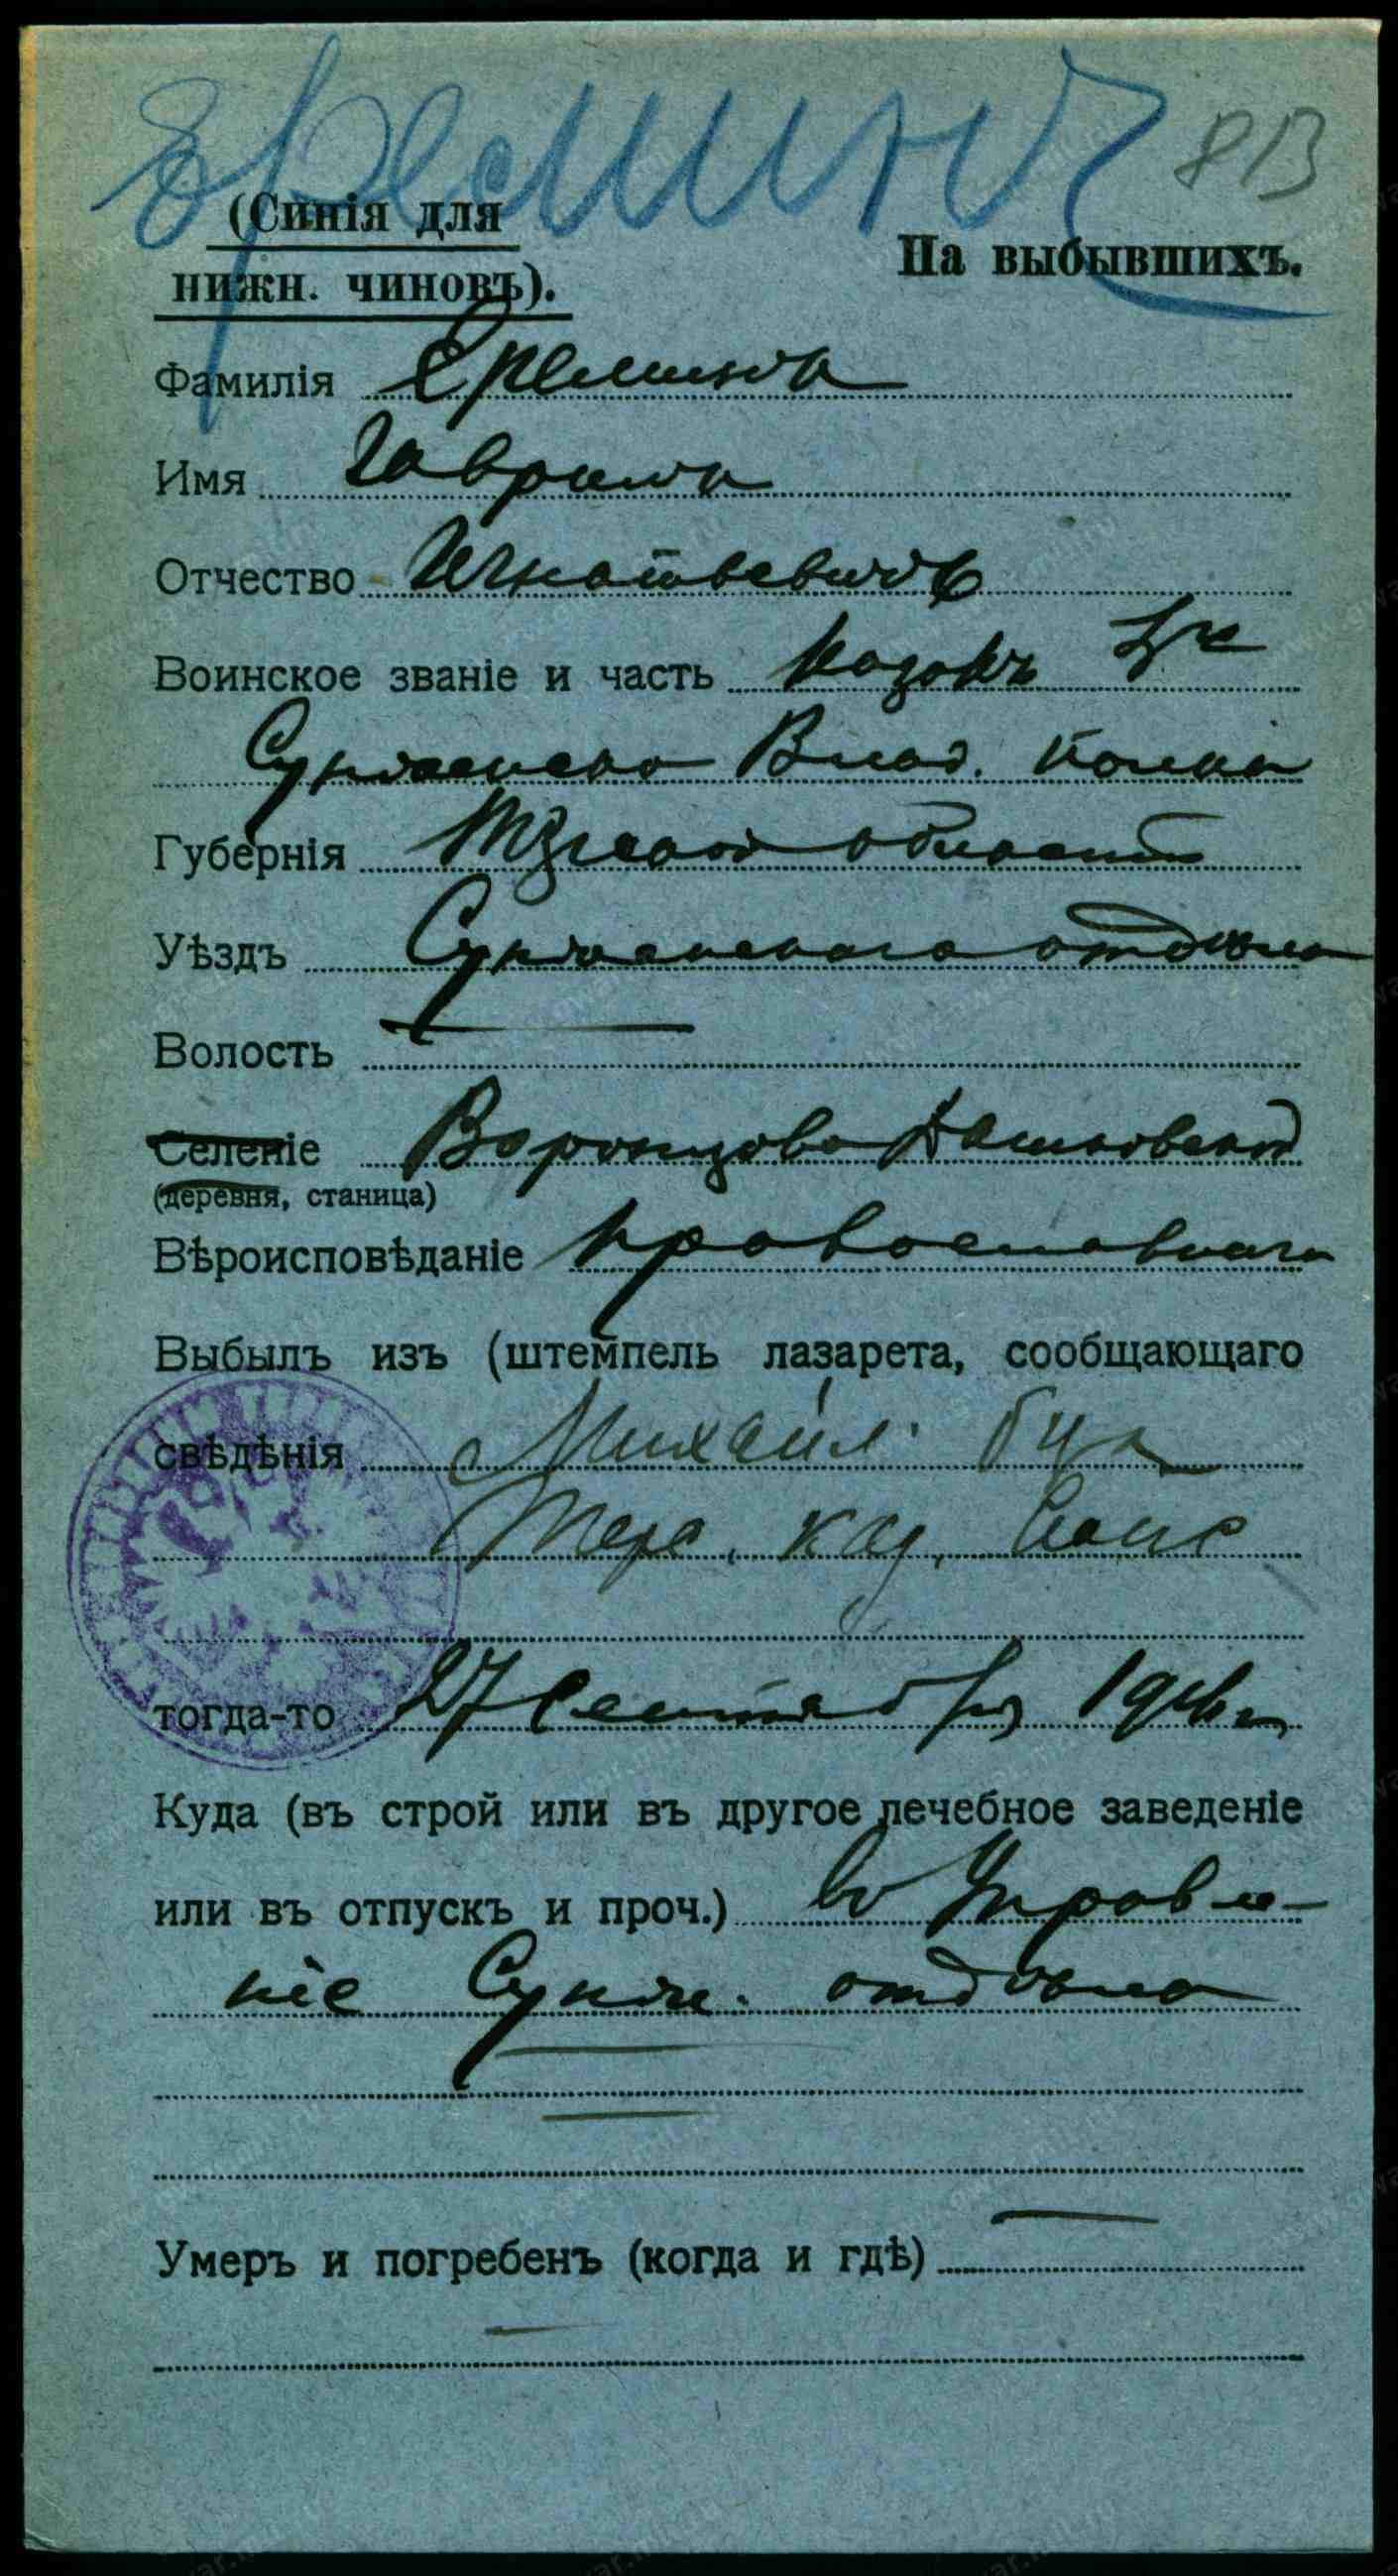 Еремин
813
(Синія для
нижн. чиновъ).
На выбывшихъ.
Фамилія Еремин
Имя Гаврилъ
Отчество Игнатьевичъ
Воинское званіе и часть казакъ
Сунженско Влад. полка
Губернія Терской области
Уѣздъ Сунженскаго отдѣла
Волость
Селеніе Воронцово Дашковской
(деревня, станица)
Вѣроисповѣданіе православнаго
Выбылъ изъ (штемпель лазарета, сообщающаго
свѣдѣнія Михайл.
Терс. каз.
тогда-то 27 Сентября 1916 г
Куда (въ строй или въ другое лечебное заведеніе
или въ отпускъ и проч.) въ Управле-
ніе Сунж. отдѣла
Умеръ и погребенъ (когда и гдѣ)